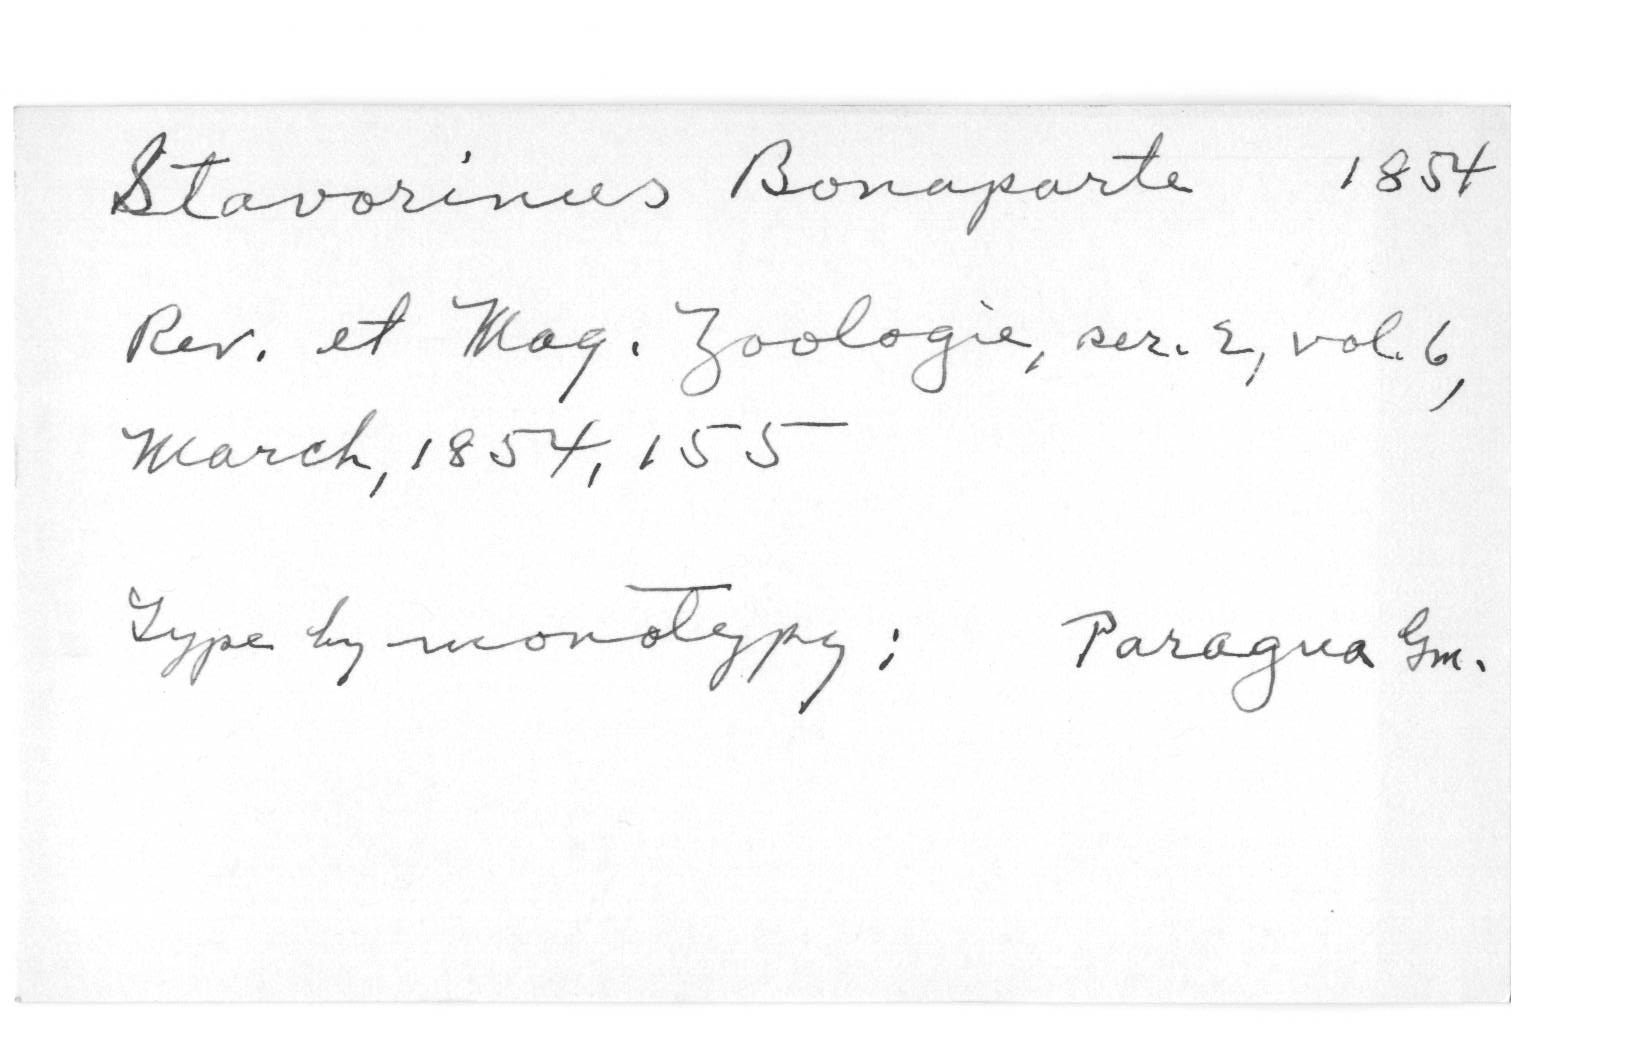 Stavorinus Bonaparte 1854
Rev. et Mag. Zoologie, ser. 2, vol. 6,
March, 1854, 155
Type by monotypy: Paragua Gm.